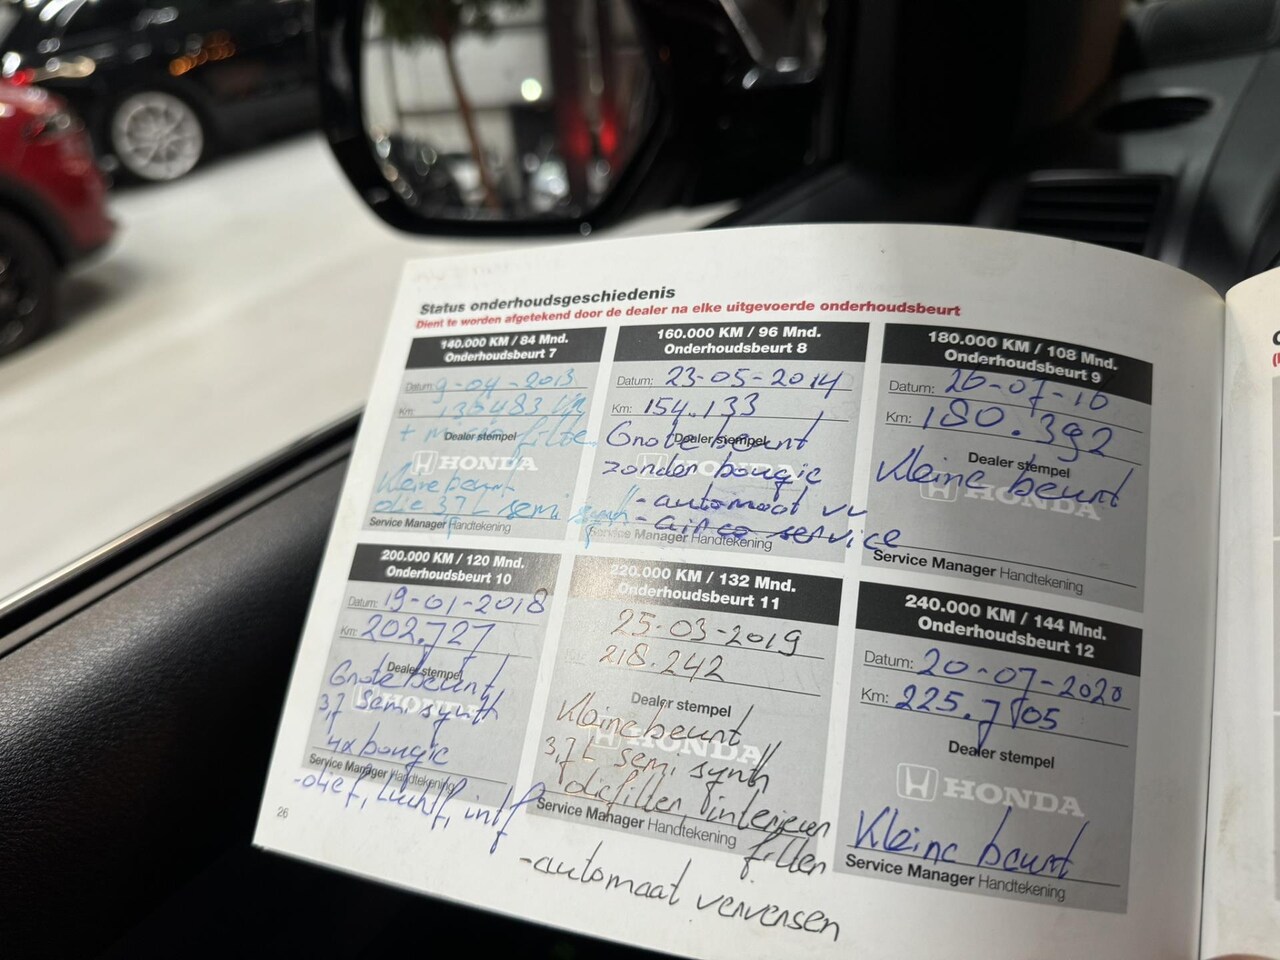 Status onderhoudsgeschiedenis
Dient te worden afgetekend door de dealer na elke uitgevoerde onderhoudsbeurt
140.000 KM / 84 Mnd.
Onderhoudsbeurt 7
Datum: 9-04-2013
Km:
+ micro filte
Dealer stempel
HONDA
Kleine beurt
olie 3,7 L semi synth
Service Manager Handtekening
160.000 KM / 96 Mnd.
Onderhoudsbeurt 8
Datum: 23-05-2014
Km: 154.133
Dealer stempel
Grote beurt
zonder bougie
- automaat vv
- airco service
Service Manager Handtekening
180.000 KM / 108 Mnd.
Onderhoudsbeurt 9
Datum: 26-07-16
Km: 180.392
Dealer stempel
HONDA
Kleine beurt
Service Manager Handtekening
200.000 KM / 120 Mnd.
Onderhoudsbeurt 10
Datum: 19-01-2018
Km: 202.727
Dealer stempel
Grote beurt
3,7 semi synth
4x bougie
Service Manager Handtekening
-olief, luchtf, intf
220.000 KM / 132 Mnd.
Onderhoudsbeurt 11
25-03-2019
218.242
Dealer stempel
HONDA
Kleine beurt
3,7 L semi synth
oliefilter, interieur
filter
Service Manager Handtekening
-automaat verversen
240.000 KM / 144 Mnd.
Onderhoudsbeurt 12
Datum: 20-07-2020
Km: 225.705
Dealer stempel
HONDA
Kleine beurt
Service Manager Handtekening
26